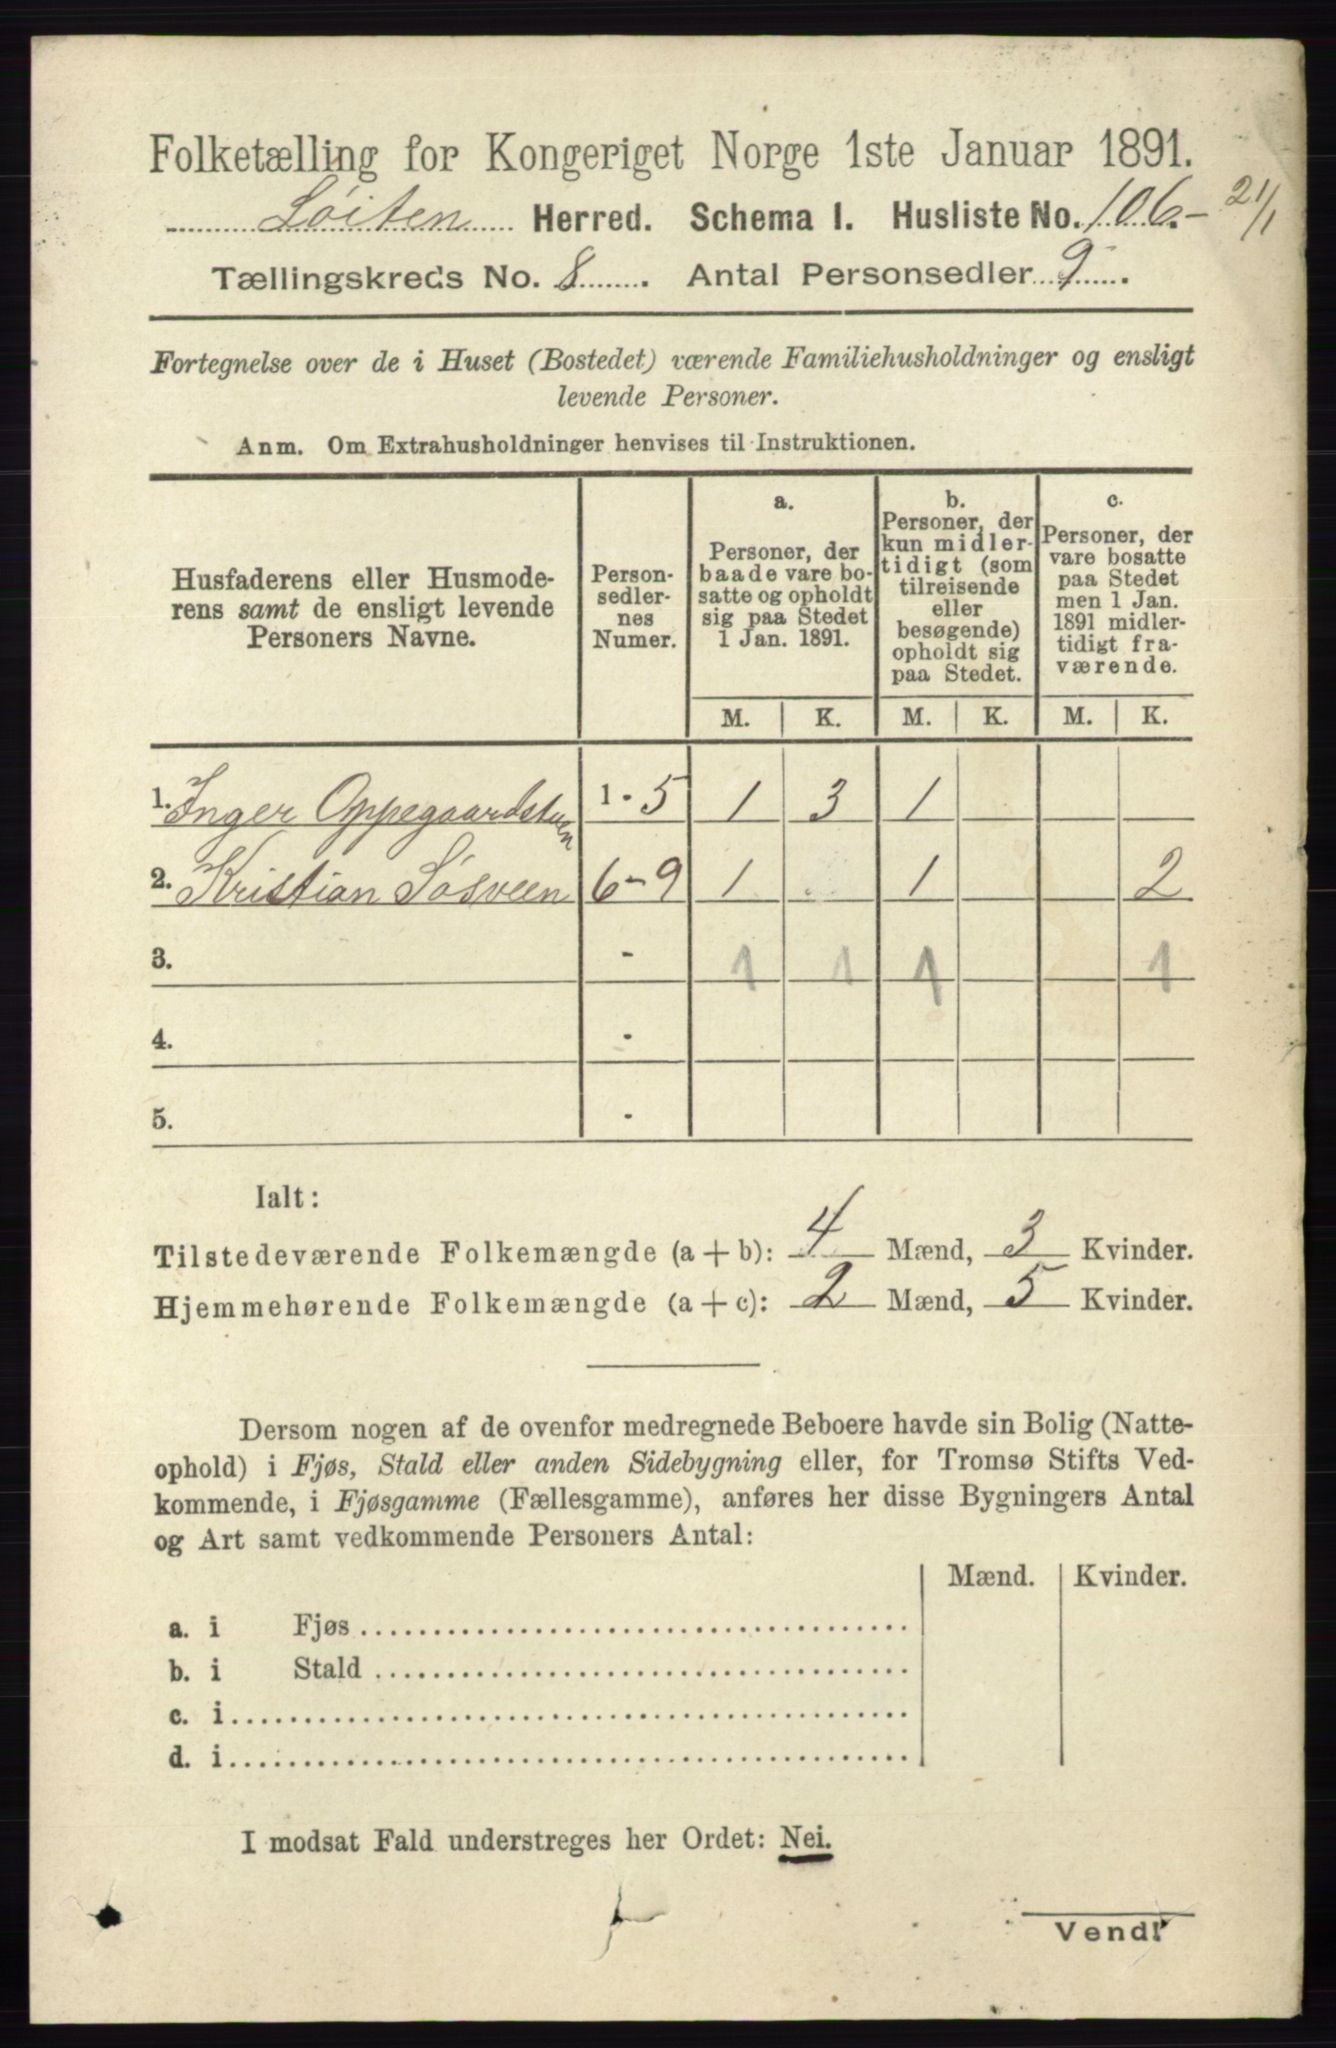 Folketælling for Kongeriget Norge 1ste Januar 1891.
Løiten Herred. Schema I. Husliste No. 106 - 21/1
Tællingskreds No. 8. Antal Personsedler 9.
Fortegnelse over de i Huset (Bostedet) værende Familiehusholdninger og ensligt
levende Personer.
Anm. Om Extrahusholdninger henvises til Instruktionen.
Husfaderens eller Husmode-
rens samt de ensligt levende
Personers Navne.
Person-
sedler-
nes
Numer.
a.
Personer, der
baade vare bo-
satte og opholdt
sig paa Stedet
1 Jan. 1891.
b.
Personer, der
kun midler-
tidigt (som
tilreisende
eller
besøgende)
opholdt sig
paa Stedet.
c.
Personer, der
vare bosatte
paa Stedet
men 1 Jan.
1891 midler-
tidigt fra-
værende.
M. K. M. K. M. K.
1. Inger Oppegaardstuen 1 - 5 1 3 1
2. Kristian Løsveen 6 - 9 1 1 2
3. - 1 1 1 1
4. -
5. -
Ialt:
Tilstedeværende Folkemængde (a + b): 4 Mænd, 3 Kvinder.
Hjemmehørende Folkemængde (a + c): 2 Mænd, 5 Kvinder.
Dersom nogen af de ovenfor medregnede Beboere havde sin Bolig (Natte-
ophold) i Fjøs, Stald eller anden Sidebygning eller, for Tromsø Stifts Ved-
kommende, i Fjøsgamme (Fællesgamme), anføres her disse Bygningers Antal
og Art samt vedkommende Personers Antal:
Mænd. Kvinder.
a. i Fjøs
b. i Stald
c. i
d. i
I modsat Fald understreges her Ordet: Nei.
Vend!